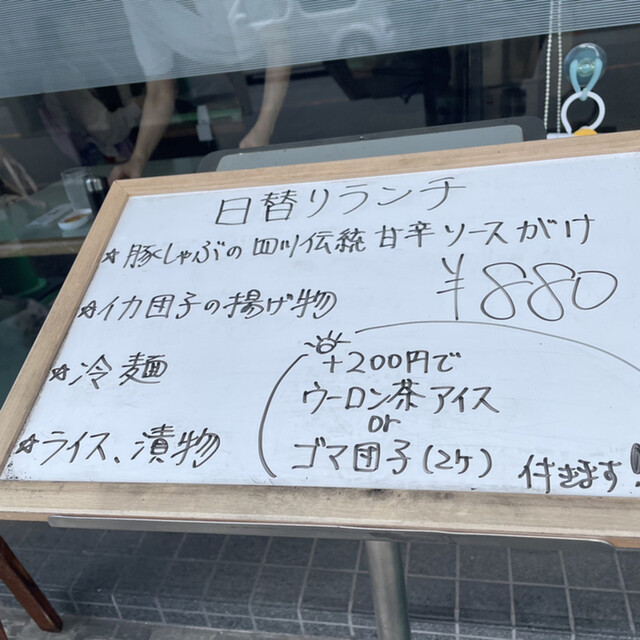 日替りランチ
☆豚しゃぶの四川伝統甘辛ソースがけ
☆イカ団子の揚げ物
¥880
☆冷麺
+200円で
ウーロン茶アイス
or
☆ライス、漬物
ゴマ団子(2ケ)
付きます!!